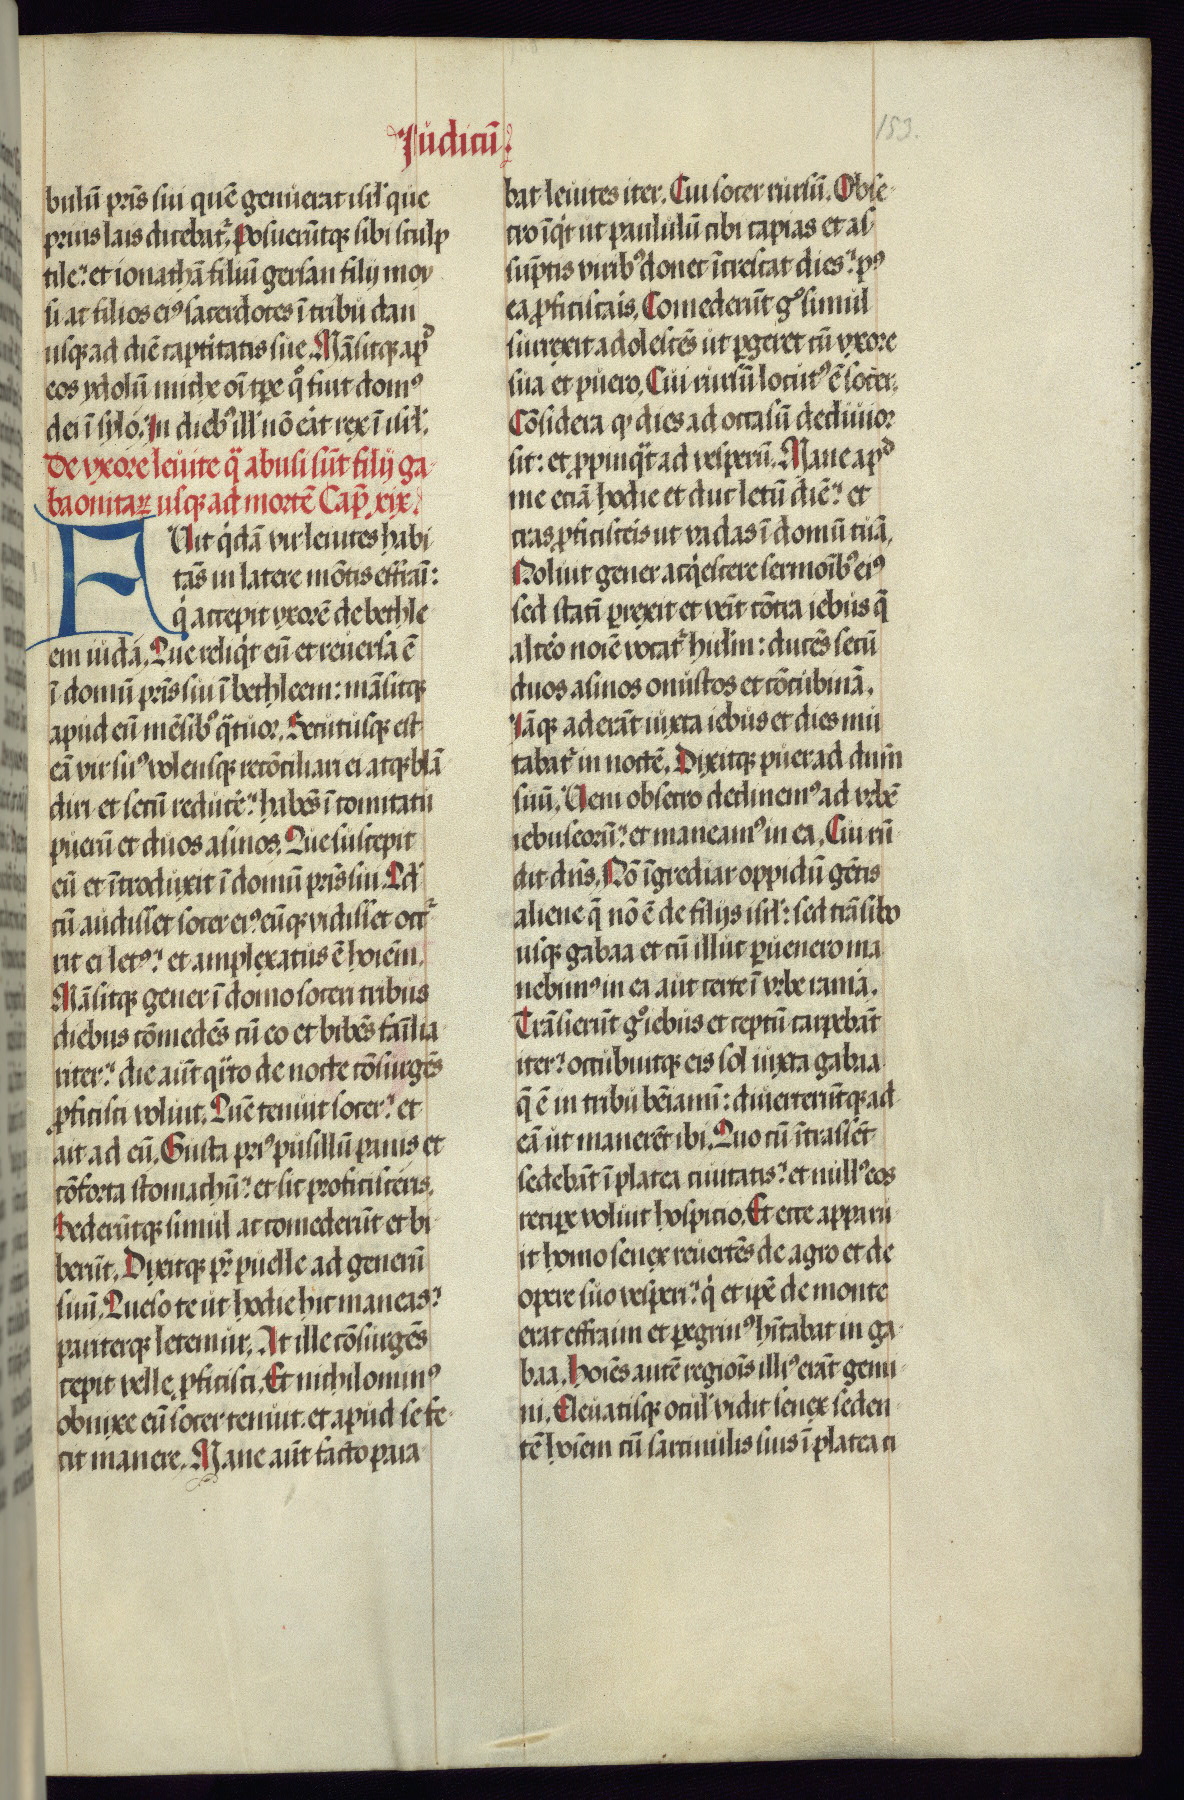 Iudicū
153.
bulū pr̄is sui quē genuerat isrl̄ que
prius lais dicebatr̉. Posuerūtqꝫ sibi sculp
tile: et ionathā filiū gersan filij moy
si ac filios eiꝰ sacerdotes ī tribu dan
usqꝫ ad diē captitatis sue. Māsitqꝫ apᵈ
eos ydolū miche oī tp̄e qͦ fuit domꝰ
dei ī sylo. In diebꝰ ill̄ nō erat rex ī isrl̄.
De vxore leuite q̄ abusi sūt filij ga
baonitaꝝ usqꝫ ad mortē Cap̄ xix.
FUit qͥdā vir leuites habi
tās in latere mōtis effraī:
qͥ accepit vxorē de bethle
em iuda. Que reliqͥt eū et reuersa ē
ī domū pr̄is sui ī bethleem: māsitqꝫ
apud eū mēsibꝰ qᵃtuor. Secutusqꝫ est
eā vir suꝰ volensqꝫ recōciliari ei atqꝫ blā
diri et secū reducē: habēs ī comitatu
puerū et duos asinos. Que suscepit
eū et ītroduxit ī domū pr̄is sui. Qd̄
cū audisset socer eiꝰ eūqꝫ vidisset occr̉
rit ei letꝰ: et amplexatus ē hoīem.
Māsitqꝫ gener ī domo soceri tribus
diebus cōmedēs cū eo et bibēs familia
riter: die aūt qᵃrto de nocte cōsurgēs
ꝓficisci voluit. Quē tenuit socer: et
ait ad eū. Gusta priꝰ pusillū panis et
cōforta stomachū: et sic proficisceris.
Sederūtqꝫ simul ac comederūt et bi
berūt. Dixitqꝫ pr̄ puelle ad generū
suū. Queso te ut hodie hic maneas:
pariterqꝫ letemur. At ille cōsurgēs
cepit velle ꝓficisci. Et nichilominꝰ
obnixe eū socer tenuit. et apud se fe
cit manere. Mane aūt facto para
bat leuites iter. Cui socer rursū. Obse
cro īqͥt ut paululū cibi capias et as
sūptis viribꝰ donec īcrescat dies: pꝰ
ea ꝓficiscais. Comederūt gͦ simul
surrexit adolescēs ut ꝑgeret cū vxore
sua et puero. Cui rursū locutꝰ ē socer.
Cōsidera ꝙ dies ad occasū decliuior
sit: et ꝓpinqᵃt ad vesperū. Mane apᵈ
me etiā hodie et duc letū diē: et
cras ꝓficisceis ut vadas ī domū tuā.
Noluit gener acqͥescere sermoībꝰ eiꝰ
sed statī ꝑrexit et venit cōtra iebus q̄
alteͦ noīe vocatr̉ hirl̄m: ducēs secū
duos asinos onustos et cōcubinā.
Iāqꝫ aderāt iuxta iebus et dies mu
tabatr̉ in noctē. Dixitqꝫ puer ad dn̄m
suū. Veni obsecro declinemꝰ ad vrbē
iebuseorū: et maneamꝰ in ea. Cui rn̄
dit dn̄s. Nō īgrediar oppidū gētis
aliene q̄ nō ē de filijs isrl̄: sed trāsibo
usqꝫ gabaa et cū illuc ꝑuenero ma
nebimꝰ in ea aut certe ī vrbe rama.
Trāsierūt gͦ iebus et ceptū carpebāt
iter: occubuitqꝫ eis sol iuxta gabaa
q̄ ē in tribu bēiamī: diuerterūtqꝫ ad
eā ut manerēt ibi. Quo cū ītrassēt
sedebāt ī platea ciuitatis: et nullꝰ eos
recipe voluit hospicio. Et ecce apparu
it homo senex reuertēs de agro et de
opere suo vesperi: qͥ et ipē de monte
erat effraim et ꝑegrinꝰ hītabat in ga
baa. hoīes autē regiois illiꝰ erāt gemi
ni. Eleuatisqꝫ ocul̄ vidit senex seden
tē hoīem cū sarcinulis suis ī platea ci